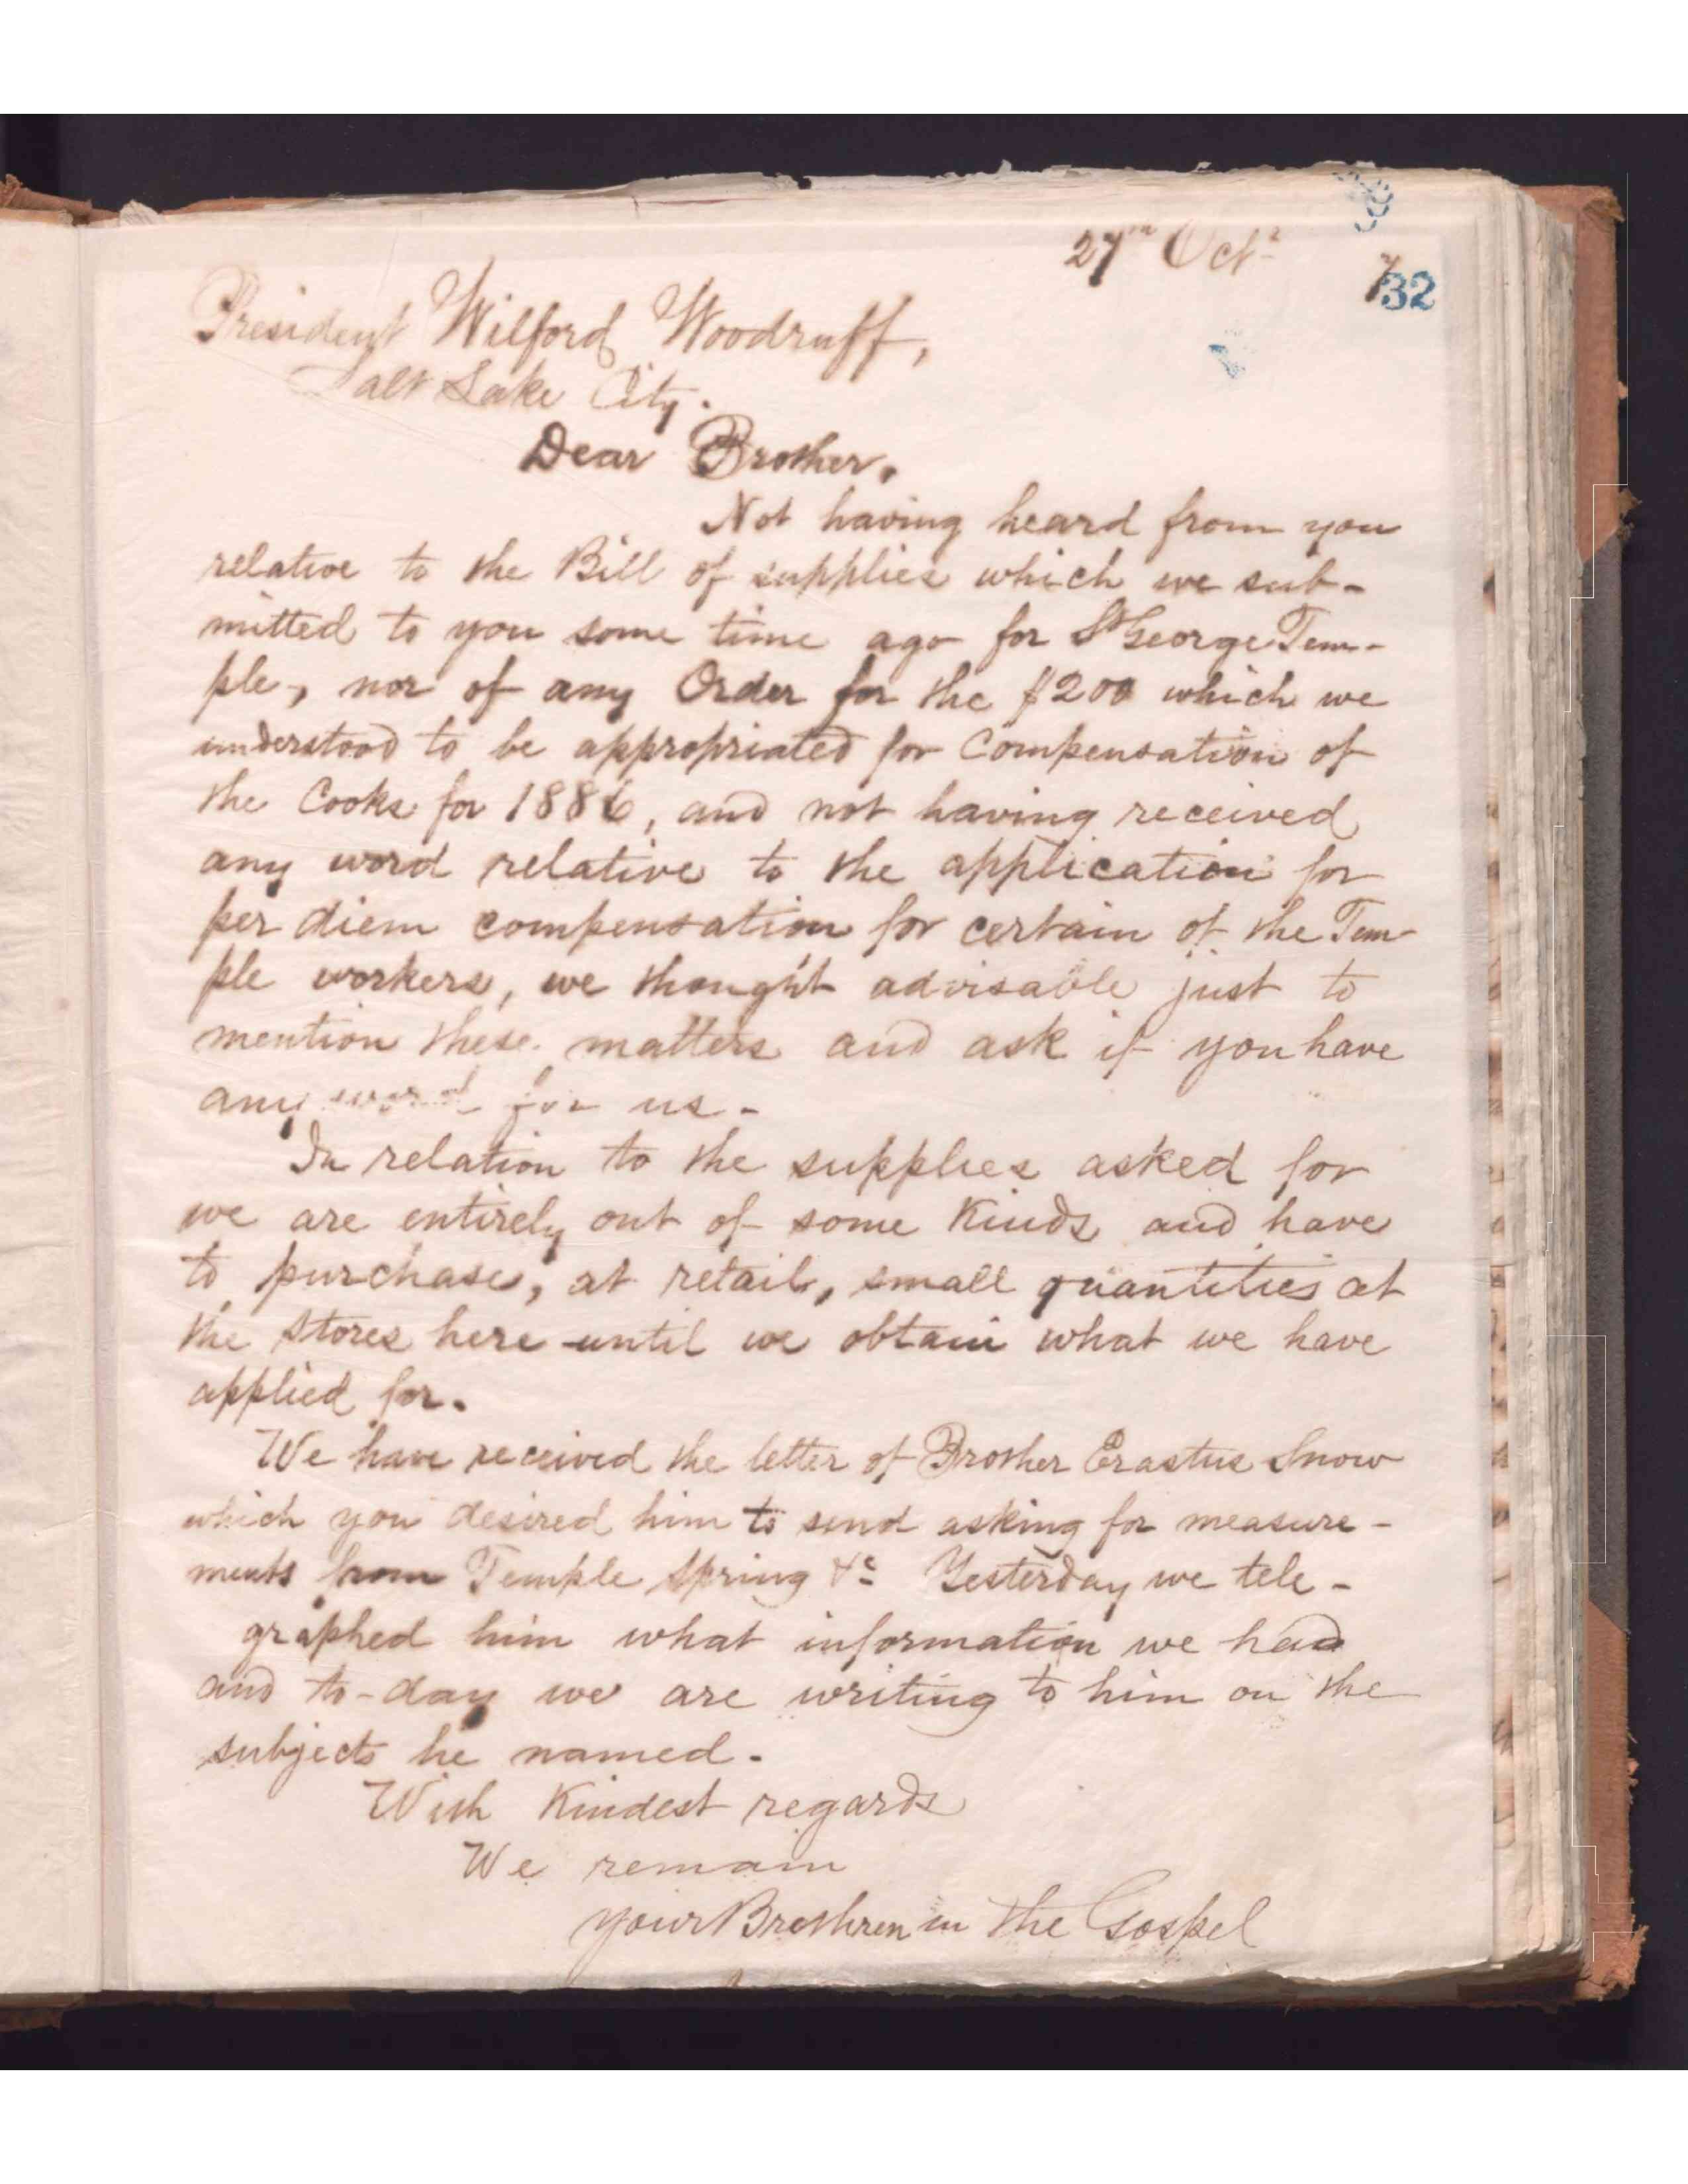 27th Octr
732
President Wilford Woodruff,
Salt Lake City.
Dear Brother,
Not having heard from you
relative to the Bill of supplies which we sub-
mitted to you some time ago for St George Tem-
ple, nor of any Order for the $200 which we
understood to be appropriated for Compensation of
the Cooks for 1886, and not having received
any word relative to the application for
per diem compensation for certain of the Tem-
ple workers, we thought advisable just to
mention these matters and ask if you have
any word for us.
In relation to the supplies asked for
we are entirely out of some kinds and have
to purchase, at retail, small quantities at
the stores here until we obtain what we have
applied for.
We have received the letter of Brother Erastus Snow
which you desired him to send asking for measure-
ments from Temple Spring &c Yesterday we tele-
graphed him what information we had
and to-day we are writing to him on the
subjects he named.
With Kindest regards
We remain
your Brethren in the Gospel